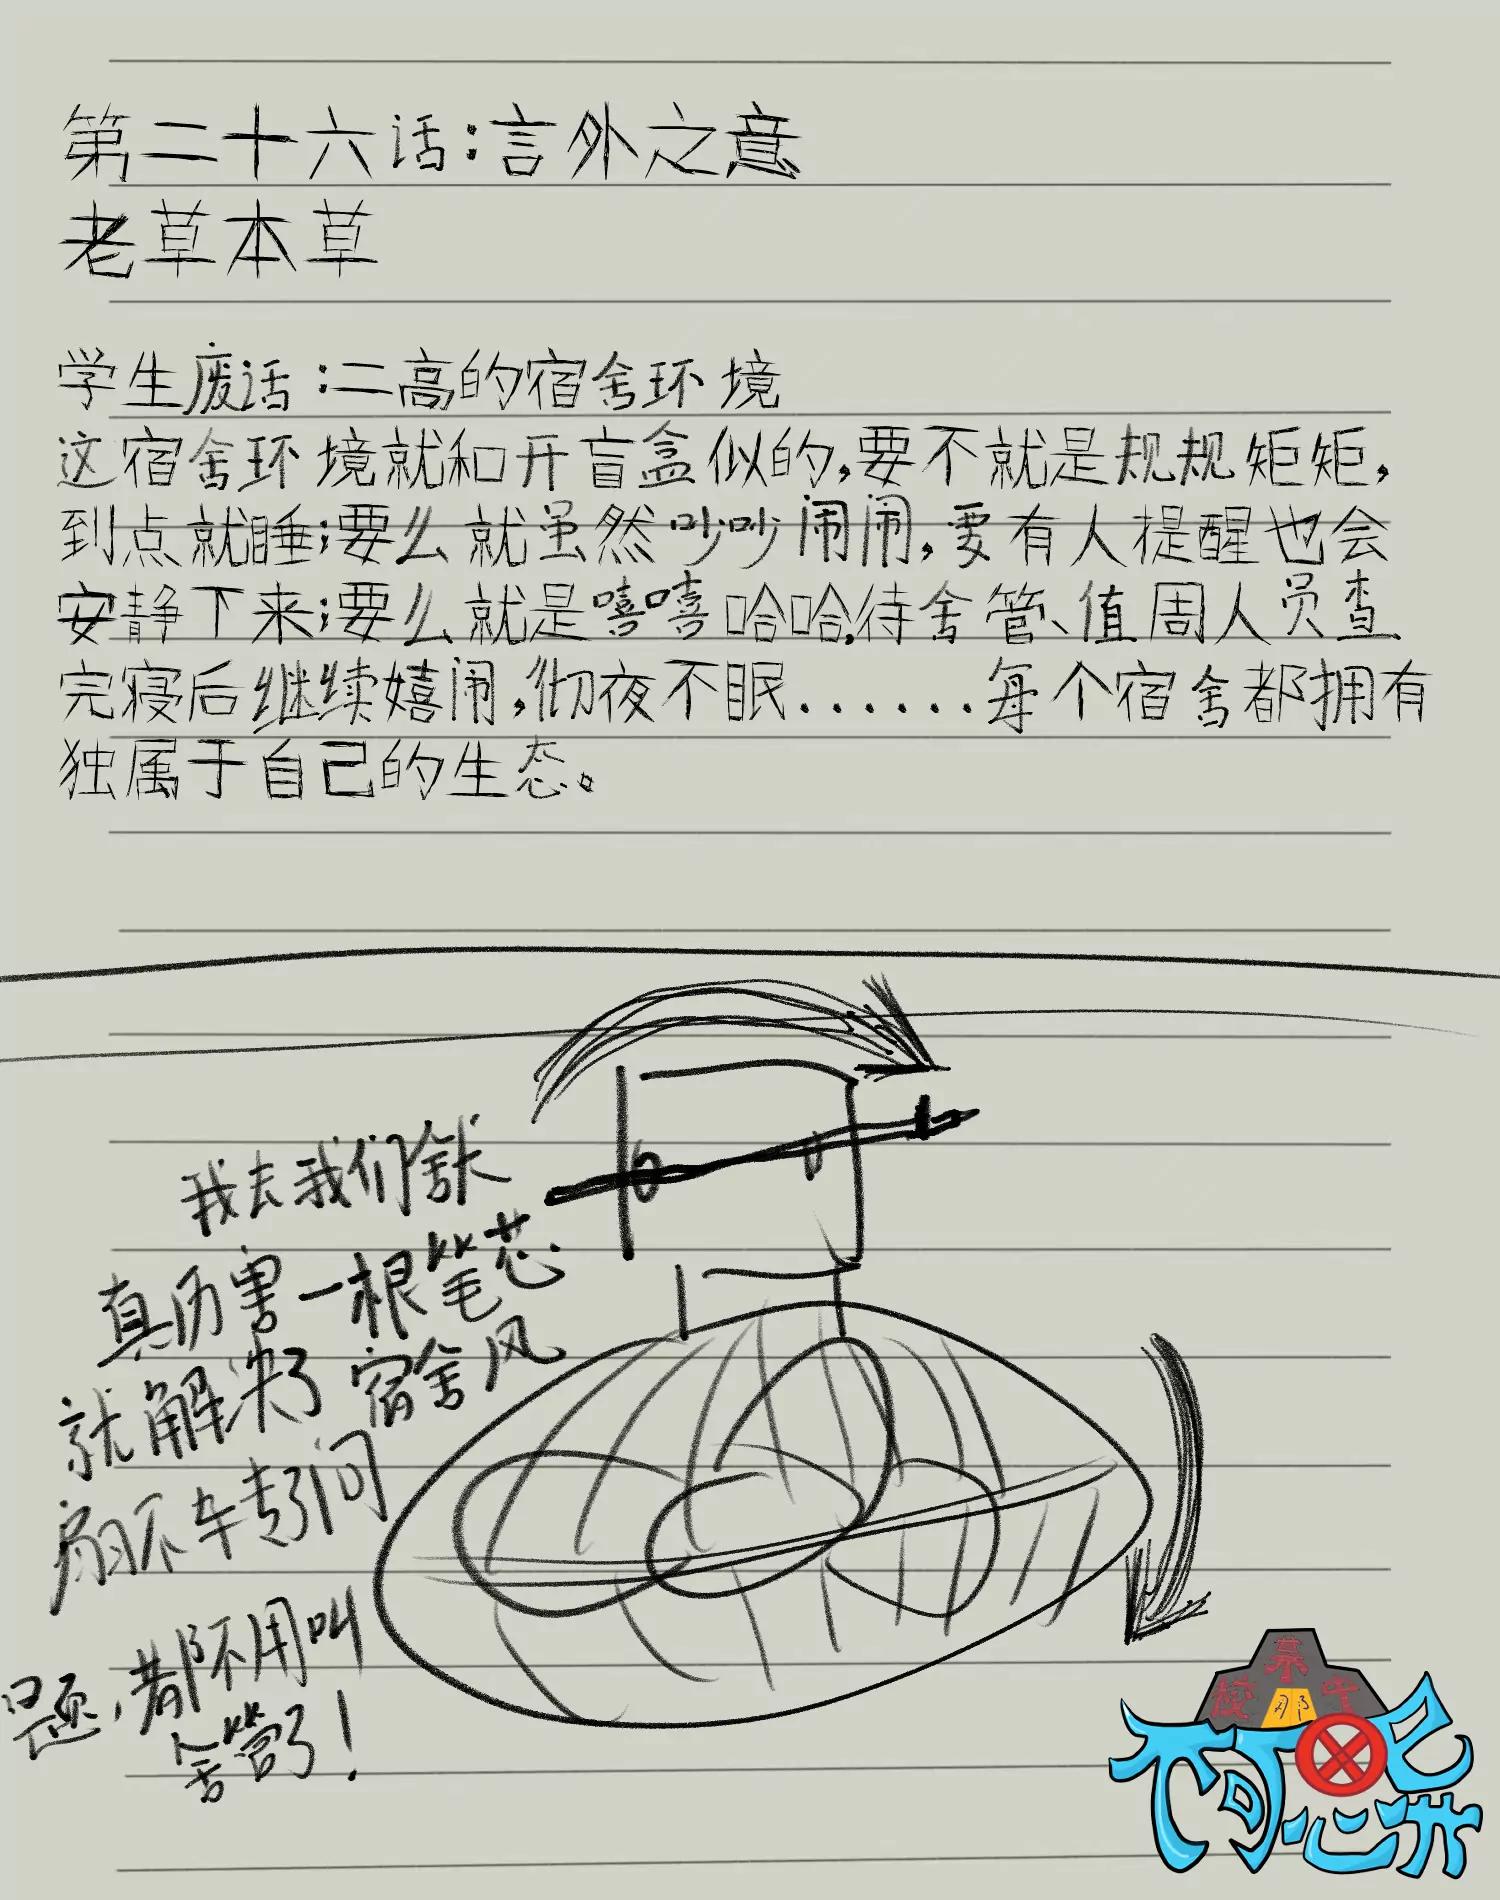 第二十六话:言外之意
老草本草
学生废话:二高的宿舍环境
这宿舍环境就和开盲盒似的,要不就是规规矩矩,
到点就睡;要么就虽然吵吵闹闹,要有人提醒也会
安静下来;要么就是嘻嘻哈哈,待舍管、值周人员查
完寝后继续嬉闹,彻夜不眠.......每个宿舍都拥有
独属于自己的生态。
我去我们舍长
真历害一根笔芯
就解决了宿舍风
扇不车专了问
题,都不用叫
舍管了!